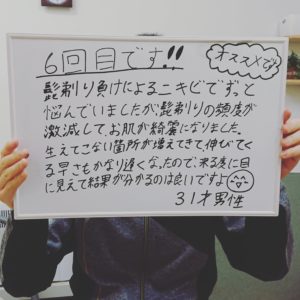 6回目です!!
オススメです
髭剃り負けによるニキビでずっと
悩んでいましたが、髭剃りの頻度が
激減して、お肌が綺麗になりました。
生えてこない箇所が増えてきて、伸びてく
る早さもかなり遅くなったので、来る度に目
に見えて結果が分かるのは良いですよ
31才男性